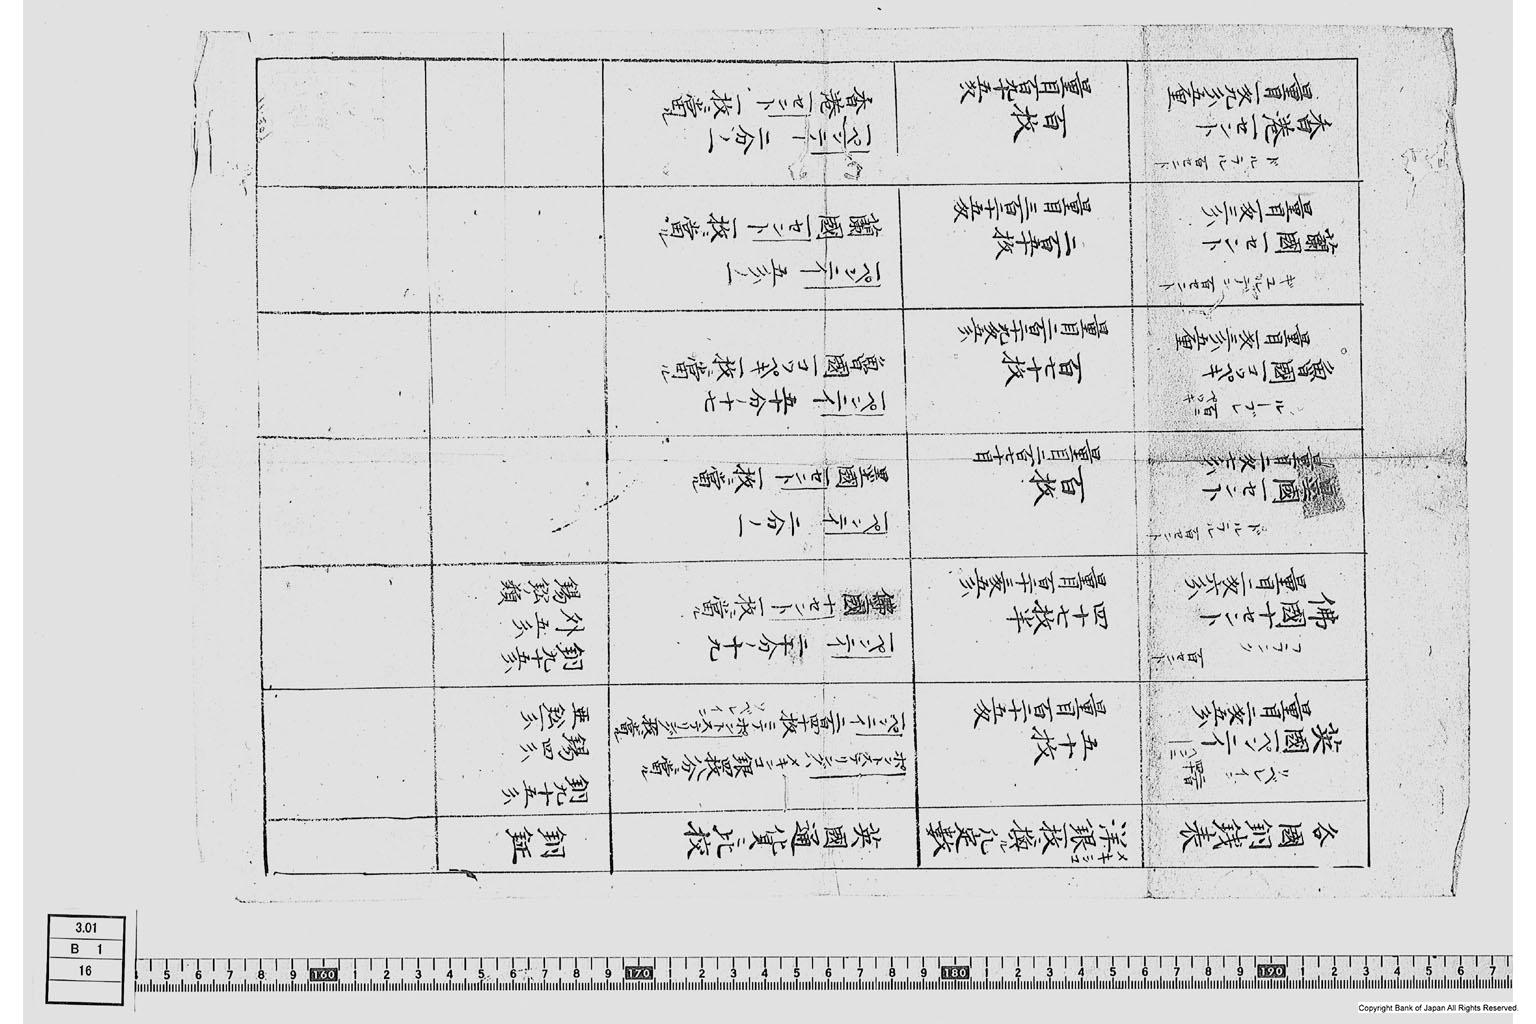 各國銅銭表
メキシコ
洋銀一枚換ル凡定数
英國通貨比較
英國一ペンニイ
量目二匁五分
五十枚
量目百二十五匁
一ペンニイ二百四十枚ニテポントステリング一枚ニ當ル
ポントステリングハメキシコ銀四枚八分ニ當ル
銅九十五分
錫四分
亜鉛一分
佛國十セント
フランク百セント
量目二匁六分
四十七枚半
量目百二十三匁五分
佛國十セント一枚ニ當ル
一ペンニイ二十分ノ十九
銅九十五分
外五分
錫鉛類
墨國一セント
ドルラル百セント
量目二匁七分
百枚
量目二百七十目
墨國一セント一枚ニ當ル
一ペンニイ二分ノ一
魯國一コッペキ
ルーブレ百コッペキ
量目一匁三分五厘
百七十枚
量目二百二十九匁五分
魯國一コッペキ一枚ニ當ル
一ペンニイ五十分ノ十七
蘭國一セント
ギュルデン百セント
量目一匁三分
二百五十枚
量目三百二十五匁
蘭國一セント一枚ニ當ル
一ペンニイ五分ノ一
香港一セント
ドルラル百セント
量目一匁九分五厘
百枚
量目百九十五匁
香港一セント一枚ニ當ル
一ペンニー二分ノ一
3.01
B 1
16
Copyright Bank of Japan All Rights Reserved.